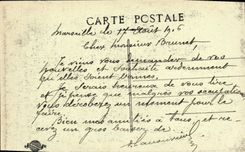 CARTE POSTALE
Marseille le 17 Août 1906
Cher Monsieur Brunet,
Je viens vous demander de vos
nouvelles et souhaite ardemment
qu'elles soient bonnes.
Je serais heureux de vous lire
et je pense que malgré vos occupations
vous déroberez un moment pour le
faire.
Bien mes amitiés à tous, et re-
cevez un gros baiser de